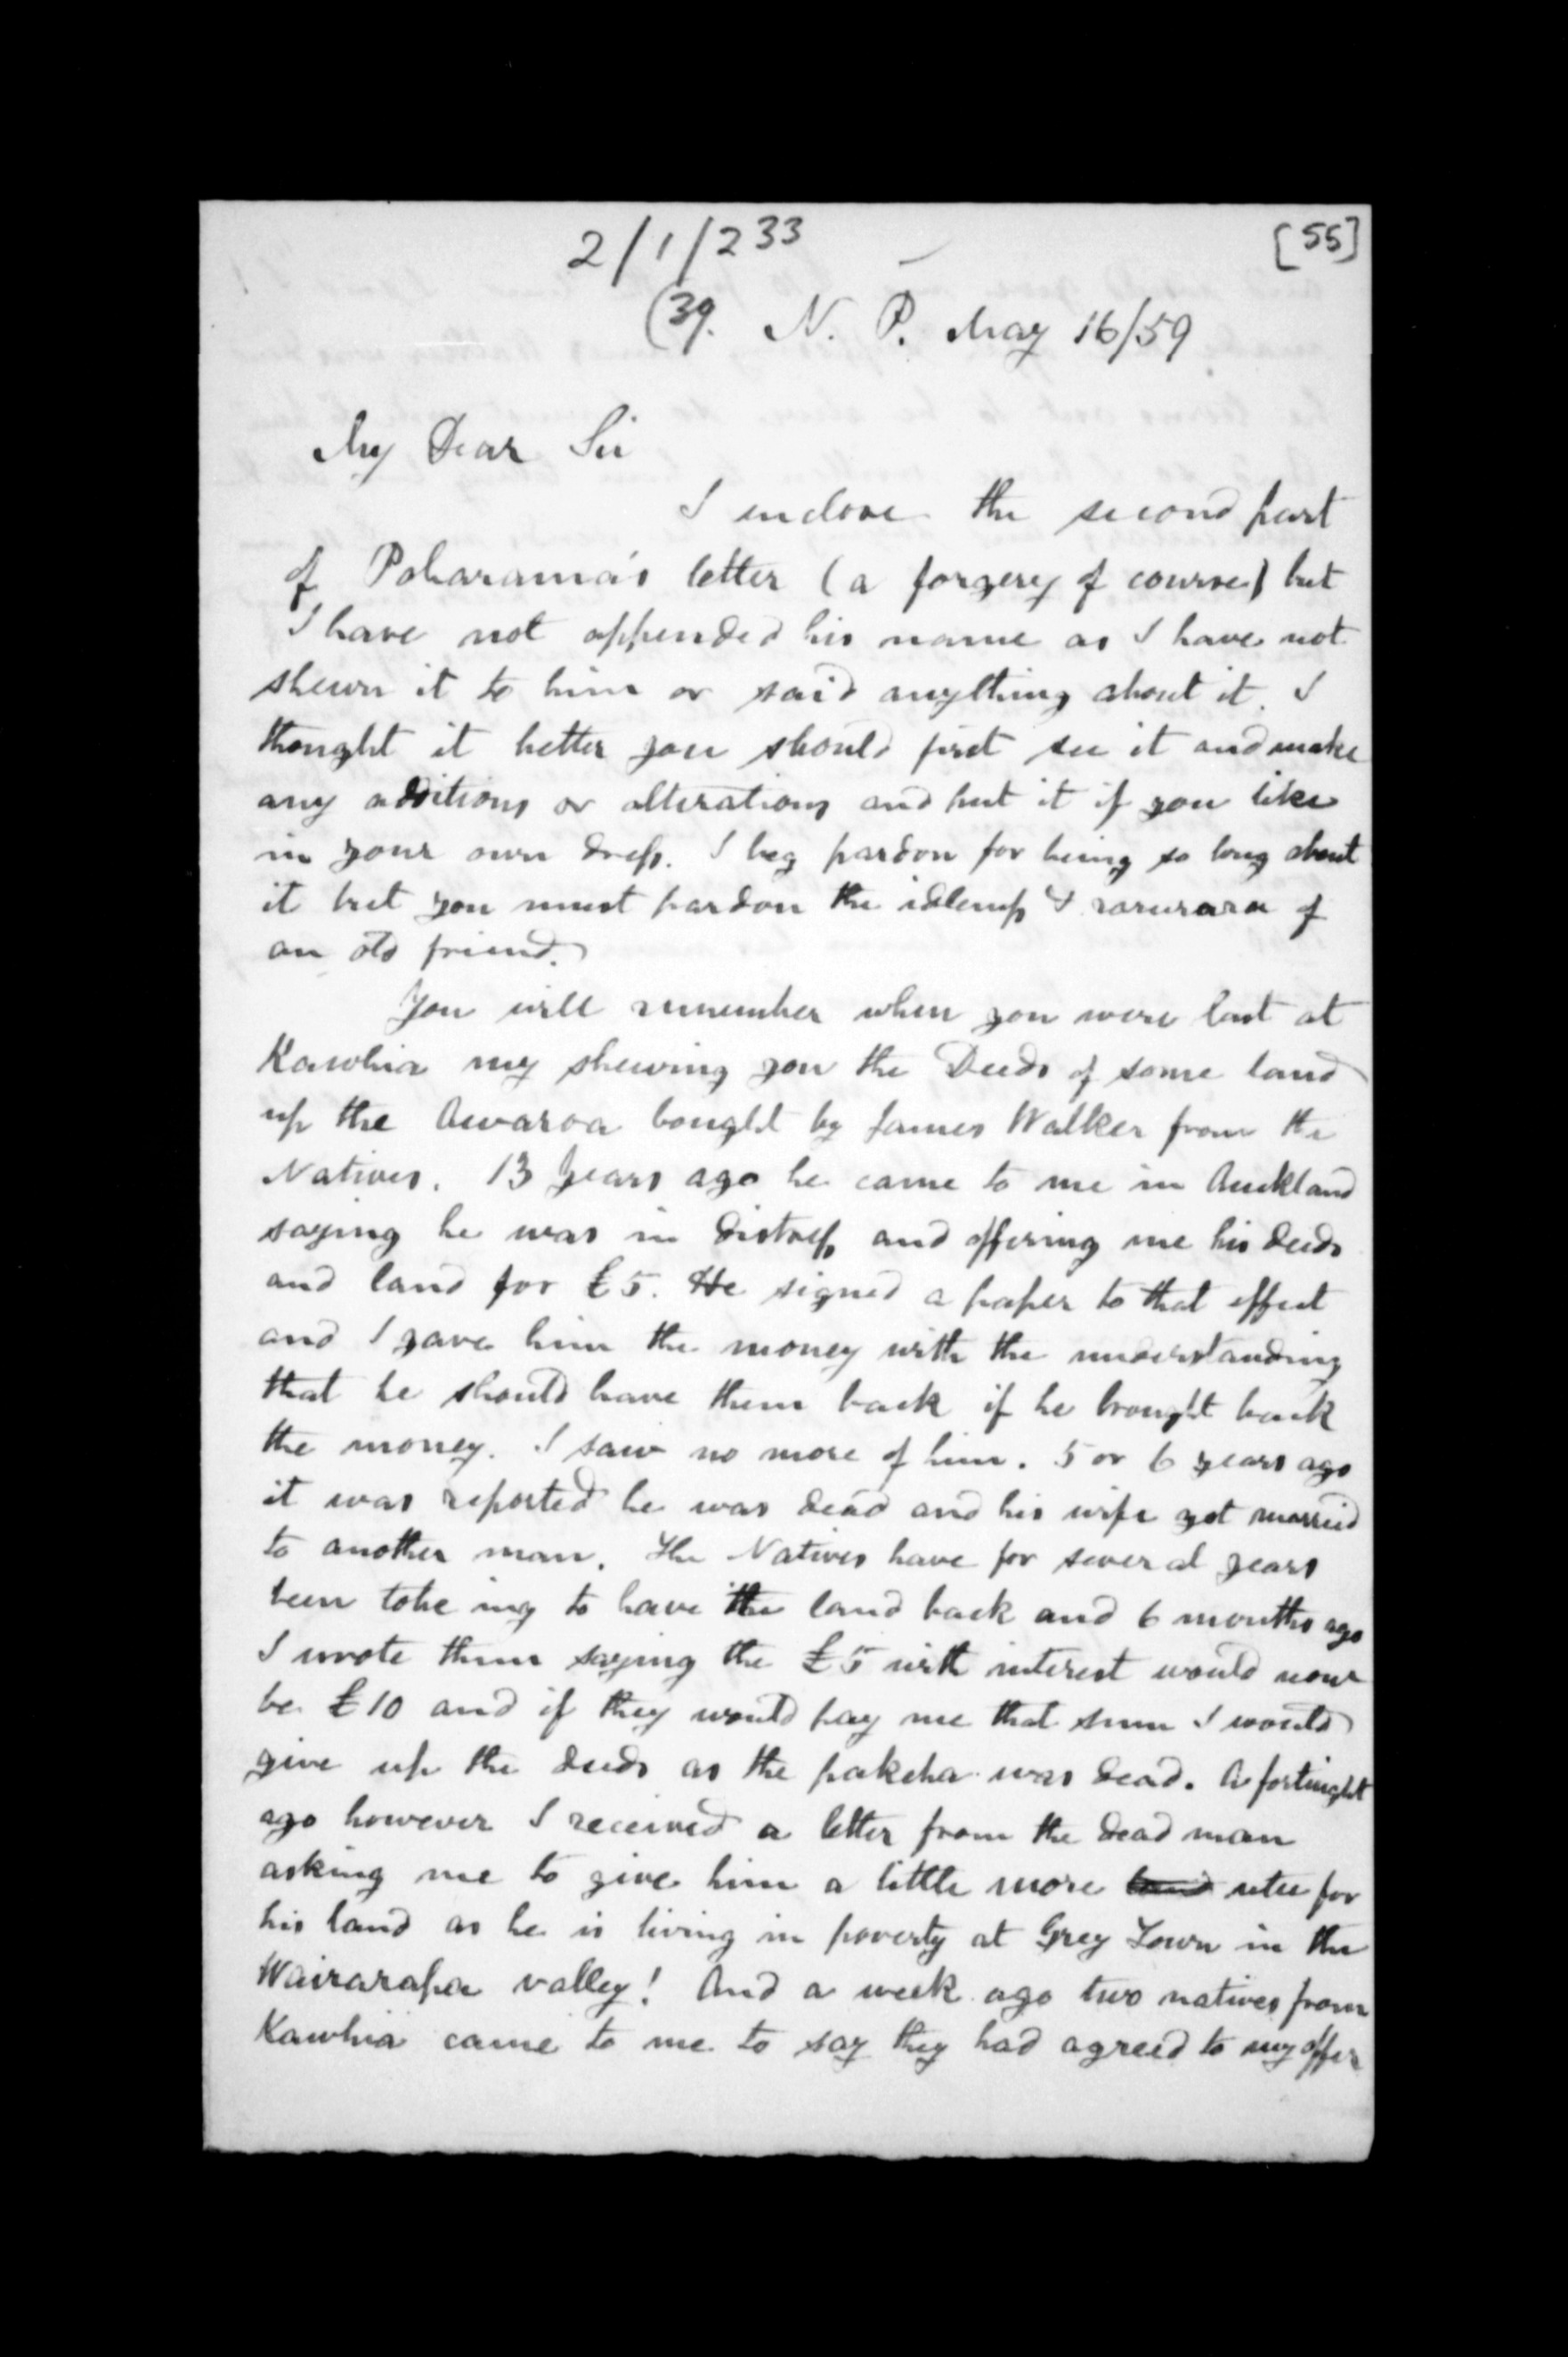 2/1/233
[55]
(39. N. P. May 16/59
My Dear Sir
I enclose the second part
of Poharama's letter (a forgery of course) but
I have not appended his name as I have not
shewn it to him or said anything about it. I
thought it better you should first see it and make
any additions or alterations and put it if you like
in your own dress. I beg pardon for being so long about
it but you must pardon the idleness & raruraru of
an old friend.
You will remember when you were last at
Kawhia my shewing you the Deeds of some land
up the Awaroa bought by James Walker from the
Natives. 13 years ago he came to me in Auckland
saying he was in distress and offering me his deeds
and land for £5. He signed a paper to that effect
and I gave him the money with the understanding
that he should have them back if he brought back
the money. I saw no more of him. 5 or 6 years ago
it was reported he was dead and his wife got married
to another man. The Natives have for several years
been tohe ing to have the land back and 6 months ago
I wrote them saying the £5 with interest would now
be £10 and if they would pay me that sum I would
give up the deeds as the pakeha was dead. A fortnight
ago however I received a letter from the dead man
asking me to give him a little more utu for
his land as he is living in poverty at Grey Town in the
Wairarapa valley! And a week ago two natives from
Kawhia came to me to say they had agreed to my offer